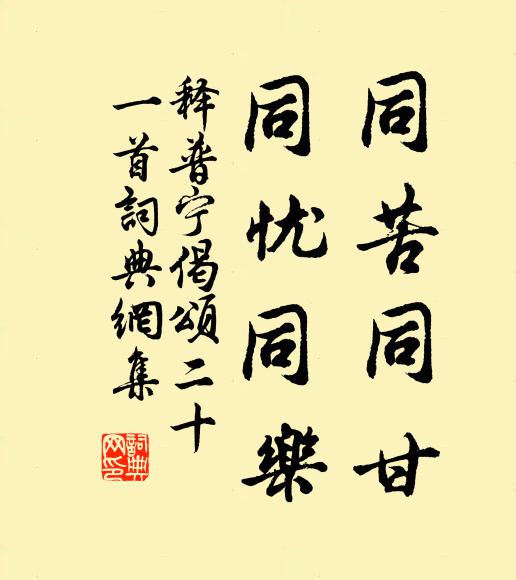 同苦同甘
同忧同樂
释普宁偈頌二十
一首詞典網集
詞典
网印